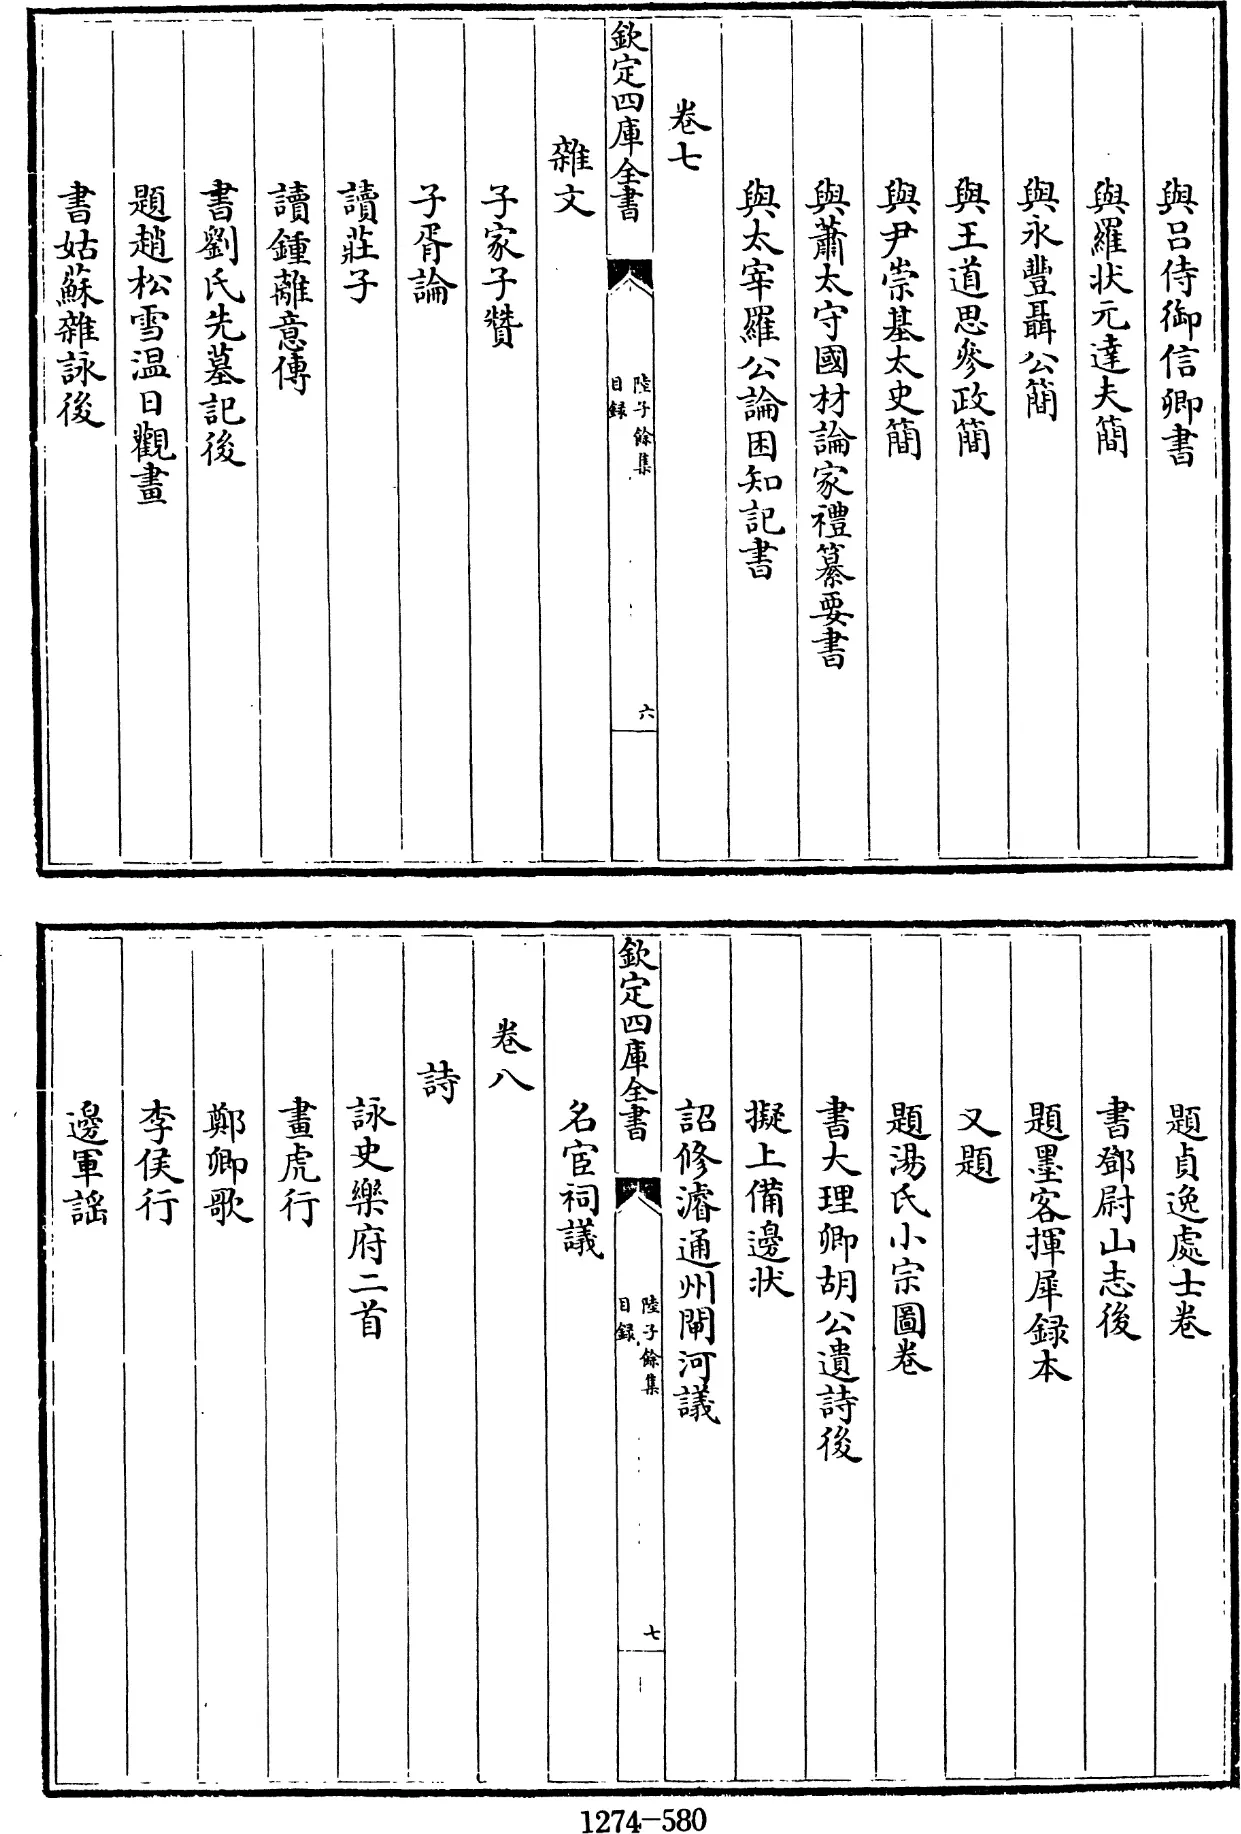 與呂侍御信卿書
與羅状元達夫簡
與永豐聶公簡
與王道思參政簡
與尹崇基太史簡
與蕭太守國材論家禮纂要書
與太宰羅公論困知記書
卷七
欽定四庫全書
陸子餘集
目録
六
雜文
子家子贊
子胥論
讀莊子
讀鍾離意傳
書劉氏先墓記後
題趙松雪温日觀畫
書姑蘇雜詠後
題貞逸處士卷
書鄧尉山志後
題墨客揮犀録本
又題
題湯氏小宗圖卷
書大理卿胡公遺詩後
擬上備邊状
詔修濬通州閘河議
欽定四庫全書
陸子餘集
目録
七
名宦祠議
卷八
詩
詠史樂府二首
畫虎行
鄭卿歌
李侯行
邊軍謡
1274-580